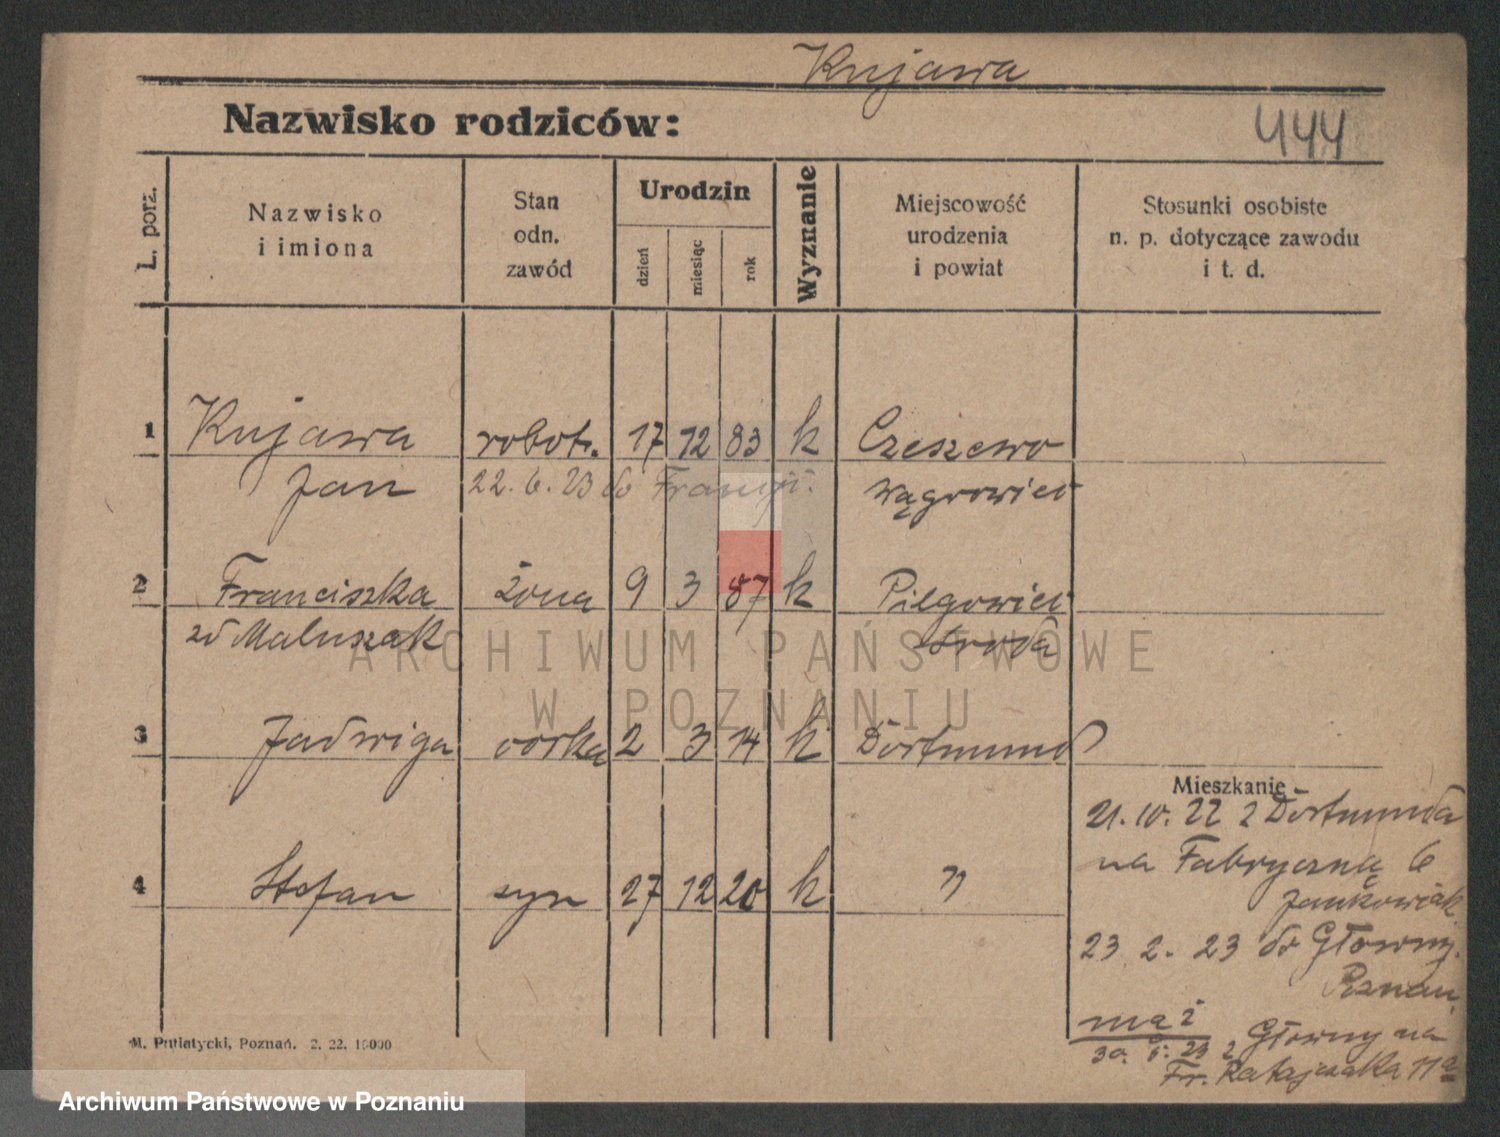 Kujawa
Nazwisko rodziców:
444
L. porz.
Nazwisko
i imiona
Stan
odn.
zawód
Urodzin
dzień
miesiąc
rok
Wyznanie
Miejscowość
urodzenia
i powiat
Stosunki osobiste
n. p. dotyczące zawodu
i t. d.
1 Kujawa robotn. 17 12 83 k Czeszewo
Jan 22. 6. 23 do Francji. Wągrowiec
2 Franciszka żona 9 3 87 k Pilgowiec
zd Maluszak Środa
3 Jadwiga córka 2 3 14 k Dortmund
4 Stefan syn 27 12 20 k "
Mieszkanie
21. 10. 22 z Dortmunda
na Fabryczną 6
Jankowiak
23 2. 23 do Główny.
Poznań.
mąż
30. 5. 23 z Główny na
Fr. Ratajczaka 11a
M. Putiatycki, Poznań. 2. 22. 15000
ARCHIWUM PAŃSTWOWE
W POZNANIU
Archiwum Państwowe w Poznaniu